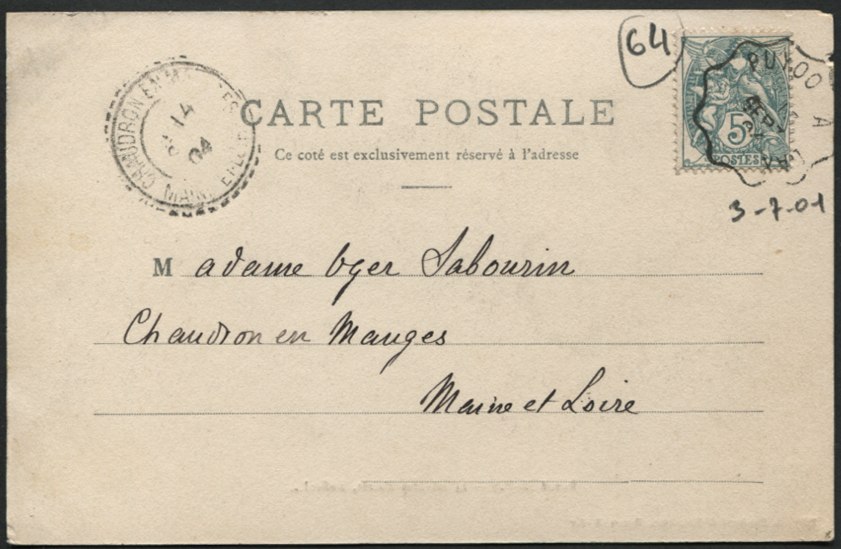 64
PUYOO A
SEPT
5
POSTES
3-7-01
CHAUDRON EN
14
04
MAINE ET
CARTE POSTALE
Ce coté est exclusivement réservé à l'adresse
Madame Sabourin
Chaudron en Mauges
Maine et Loire